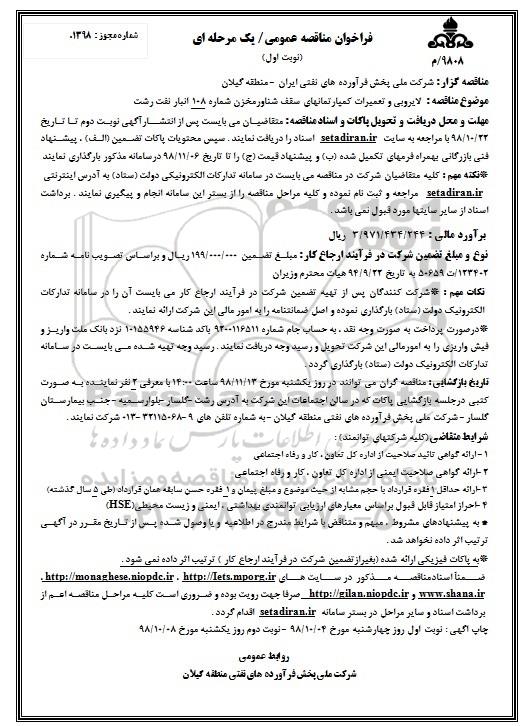 شماره مجوز: ۰۱۳۹۸
فراخوان مناقصه عمومی/ یک مرحله ای
(نوبت اول)
۹۸۰۸/م
مناقصه گزار: شرکت ملی پخش فرآورده های نفتی ایران -منطقه گیلان
موضوع مناقصه: لایروبی و تعمیرات کمپارتمانهای سقف شناورمخزن شماره ۱۰۸ انبار نفت رشت
مهلت و محل دریافت و تحویل پاکات و اسنادمناقصه: متقاضیان می بایست پس از انتشارآگهی نوبت دوم تا تاریخ
۹۸/۱۰/۲۲ با مراجعه به سایت setadiran.ir اسناد را دریافت نمایند. سپس محتویات پاکات تضمین (الف)، پیشنهاد
فنی بازرگانی بهمراه فرمهای تکمیل شده (ب) و پیشنهاد قیمت (ج) را تا تاریخ ۹۸/۱۱/۰۶ درسامانه مذکور بارگذاری نمایند
*نکته مهم: کلیه متقاضیان شرکت در مناقصه می بایست در سامانه تدارکات الکترونیکی دولت (ستاد) به آدرس اینترنتی
setadiran.ir مراجعه و ثبت نام نموده و کلیه مراحل مناقصه را از بستر این سامانه انجام و پیگیری نمایند. برداشت
اسناد از سایر سایتها مورد قبول نمی باشد.
برآورد مالی: ۳/۹۷۱/۴۳۴/۲۴۴ ریال
نوع و مبلغ تضمین شرکت در فرآیند ارجاع کار: مبلغ تضمین ۱۹۹/۰۰۰/۰۰۰ ریال و براساس تصویب نامه شماره
۱۲۳۴۰۲/ت ۵۰۶۵۹ به تاریخ ۹۴/۹/۲۲ هیات محترم وزیران
نکات مهم: *شرکت کنندگان پس از تهیه تضمین شرکت در فرآیند ارجاع کار می بایست آن را در سامانه تدارکات
الکترونیک دولت (ستاد) بارگذاری نموده و اصل ضمانتنامه را به امور مالی این شرکت ارائه نمایند.
*درصورت پرداخت به صورت وجه نقد، به حساب جام شماره ۹۲۰۰۱۱۶۵۱۱ باکد شناسه ۱۰۱۵۵۹۴۶ نزد بانک ملت واریز و
فیش واریزی را به امورمالی این شرکت تحویل و رسید وجه دریافت نمایند. رسید وجه تهیه شده می بایست در سامانه
تدارکات الکترونیک دولت (ستاد) بارگذاری گردد.
تاریخ بازگشایی: مناقصه گران می توانند در روز یکشنبه مورخ ۹۸/۱۱/۱۳ ساعت ۱۴:۰۰ با معرفی ۲ نفر نماینده به صورت
کتبی درجلسه بازگشایی پاکات که در سالن اجتماعات این شرکت به آدرس رشت -گلسار -بلوارسمیه -جنب بیمارستان
گلسار -شرکت ملی پخش فرآورده های نفتی منطقه گیلان -به شماره تلفن های ۹-۳۲۱۱۵۰۶۸-۰۱۳ شرکت نمایند.
شرایط متقاضی (کلیه شرکتهای توانمند):
۱-ارائه گواهی تائید صلاحیت از اداره کل تعاون، کار و رفاه اجتماعی
۲-ارائه گواهی صلاحیت ایمنی از اداره کل تعاون، کار و رفاه اجتماعی
۳-ارائه حداقل ۱ فقره قرارداد با حجم مشابه از حیث موضوع و مبلغ پیمان و ۱ فقره حسن سابقه همان قرارداد (طی ۵ سال گذشته)
۴-احراز امتیاز قابل قبول براساس معیارهای ارزیابی توانمندی بهداشتی، ایمنی و زیست محیطی (HSE)
* به پیشنهادهای مشروط، مبهم و متناقض با شرایط مندرج در اطلاعیه و یا وصول شده پس از تاریخ مقرر در آگهی
ترتیب اثر داده نخواهد شد.
*به پاکات فیزیکی ارائه شده (بغیرازتضمین شرکت در فرآیند ارجاع کار) ترتیب اثر داده نمی شود.
ضمناً اسنادمناقصه مذکور در سایت های http://monaghese.niopdc.ir ، http://Iets.mporg.ir ،
www.shana.ir و http://gilan.niopdc.ir صرفا جهت رویت بوده و ضروری است کلیه مراحل مناقصه اعم از
برداشت اسناد و سایر مراحل در بستر سامانه setadiran.ir اقدام گردد.
چاپ آگهی: نوبت اول روز چهارشنبه مورخ ۹۸/۱۰/۰۴ -نوبت دوم روز یکشنبه مورخ ۹۸/۱۰/۰۸
روابط عمومی
شرکت ملی پخش فرآورده های نفتی منطقه گیلان